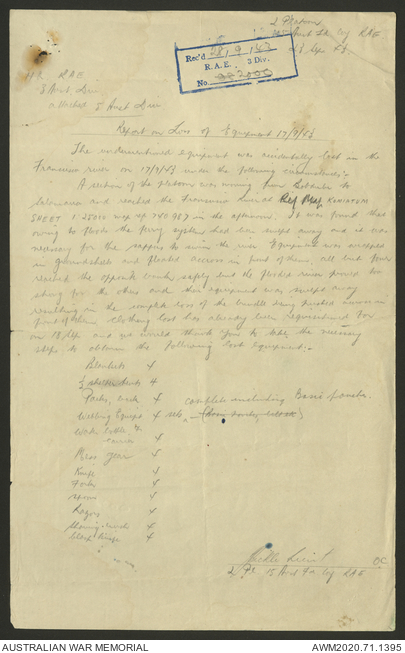 2 Platoon
15 Aust Fd Coy RAE
23 Sep 43
Rec'd 28.9.43
R.A.E. 3 Div.
No.
H.Q. RAE
3 Aust Div
attached 5 Aust Div
Report on Loss of Equipment 17/9/43
The undermentioned equipment was accidentally lost in the
Francisco river on 17/9/43 under the following circumstances:-
A section of the platoon was moving from
Salamaua and reached the Francisco river at Ref Map KOMIATUM
SHEET 1:25000 in the afternoon. It was found that
owing to floods the ferry system had been swept away and it was
necessary for the sappers to swim the river. Equipment was wrapped
in groundsheets and floated across in front of them, all but four
reached the opposite bank safely but the flooded river proved too
strong for the others and their equipment was swept away
resulting in the complete loss of the bundle being pushed across in
front of them. Clothing lost has already been requisitioned for
on 18 Sep and we would thank you to take the necessary
steps to obtain the following lost equipment:-
Blankets 4
½ shelter tents 4
Packs, 4
Webbing Equipt 4 sets complete including Basic pouches.
Water bottle &
carrier 4
Mess gear 4
Knife 4
Forks 4
Spoons 4
Razors 4
Shaving brush 4
Clasp Knife 4
Lieut OC
2 Pl 15 Aust Fd Coy RAE
AUSTRALIAN WAR MEMORIAL
AWM2020.71.1395